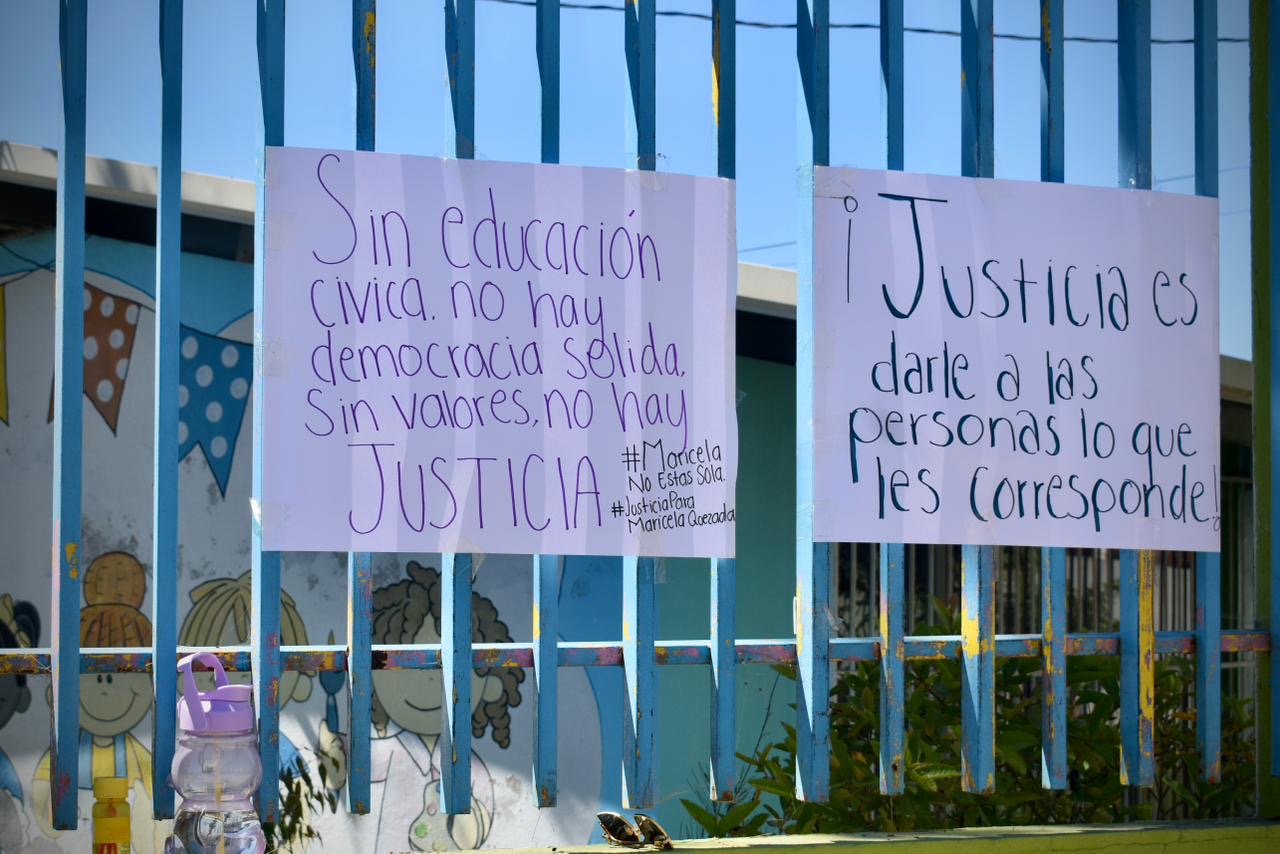 Sin educación
civica. no hay
democracia solida.
sin valores, no hay
JUSTICIA
#Maricela
No Estas Sola.
#JusticiaPara
Maricela Quezada
¡Justicia es
darle a las
personas lo que
les corresponde!